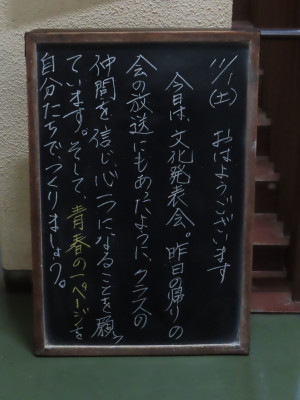 11/1(土) おはようございます
今日は、文化発表会。昨日の帰りの
会の放送にもあったように、クラスの
仲間を信じ、心一つになることを願っ
ています。そして、青春の一ページを
自分たちで、つくりましょう。